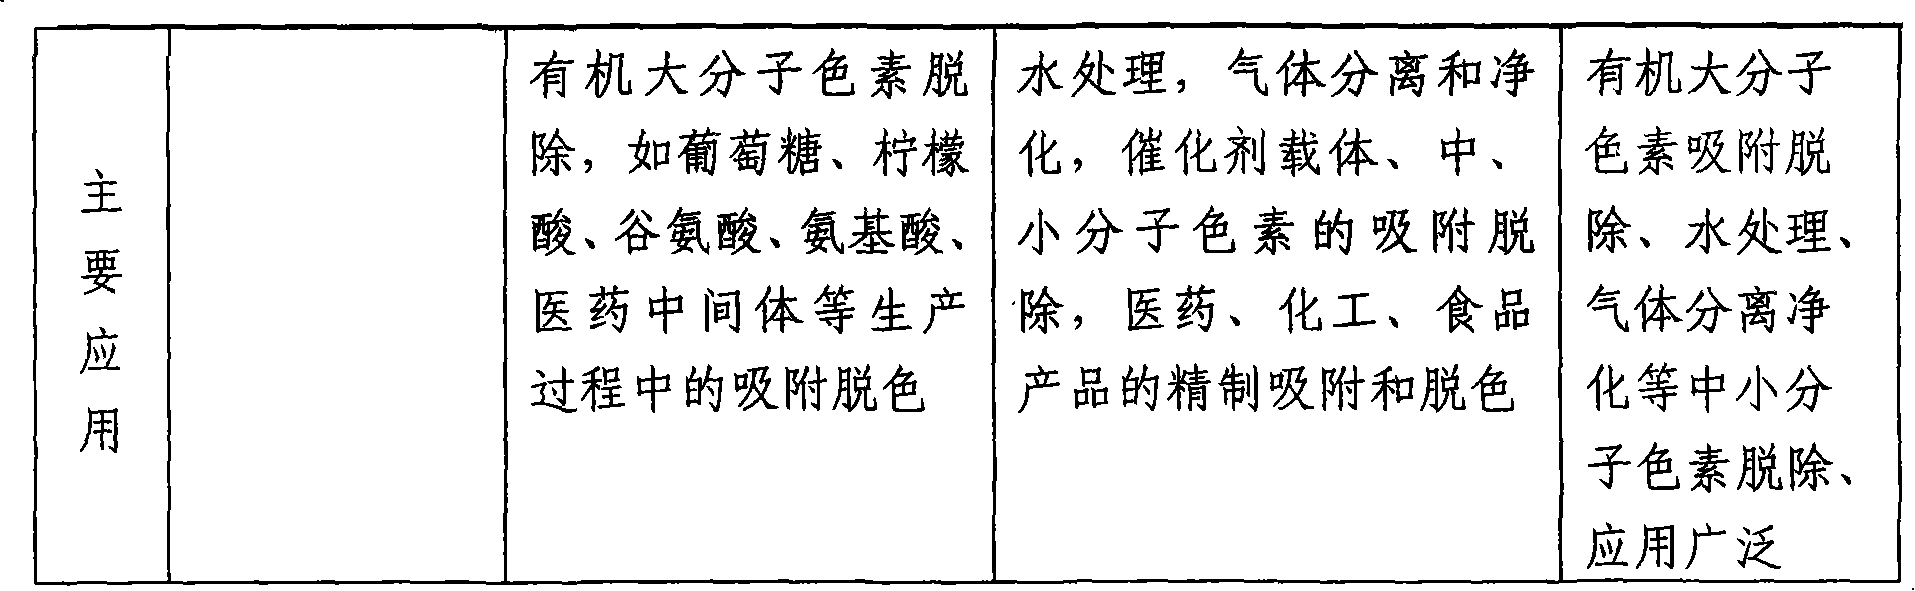 主要应用
有机大分子色素脱
除，如葡萄糖、柠檬
酸、谷氨酸、氨基酸、
医药中间体等生产
过程中的吸附脱色
水处理，气体分离和净
化，催化剂载体、中、
小分子色素的吸附脱
除，医药、化工、食品
产品的精制吸附和脱色
有机大分子
色素吸附脱
除、水处理、
气体分离净
化等中小分
子色素脱除、
应用广泛